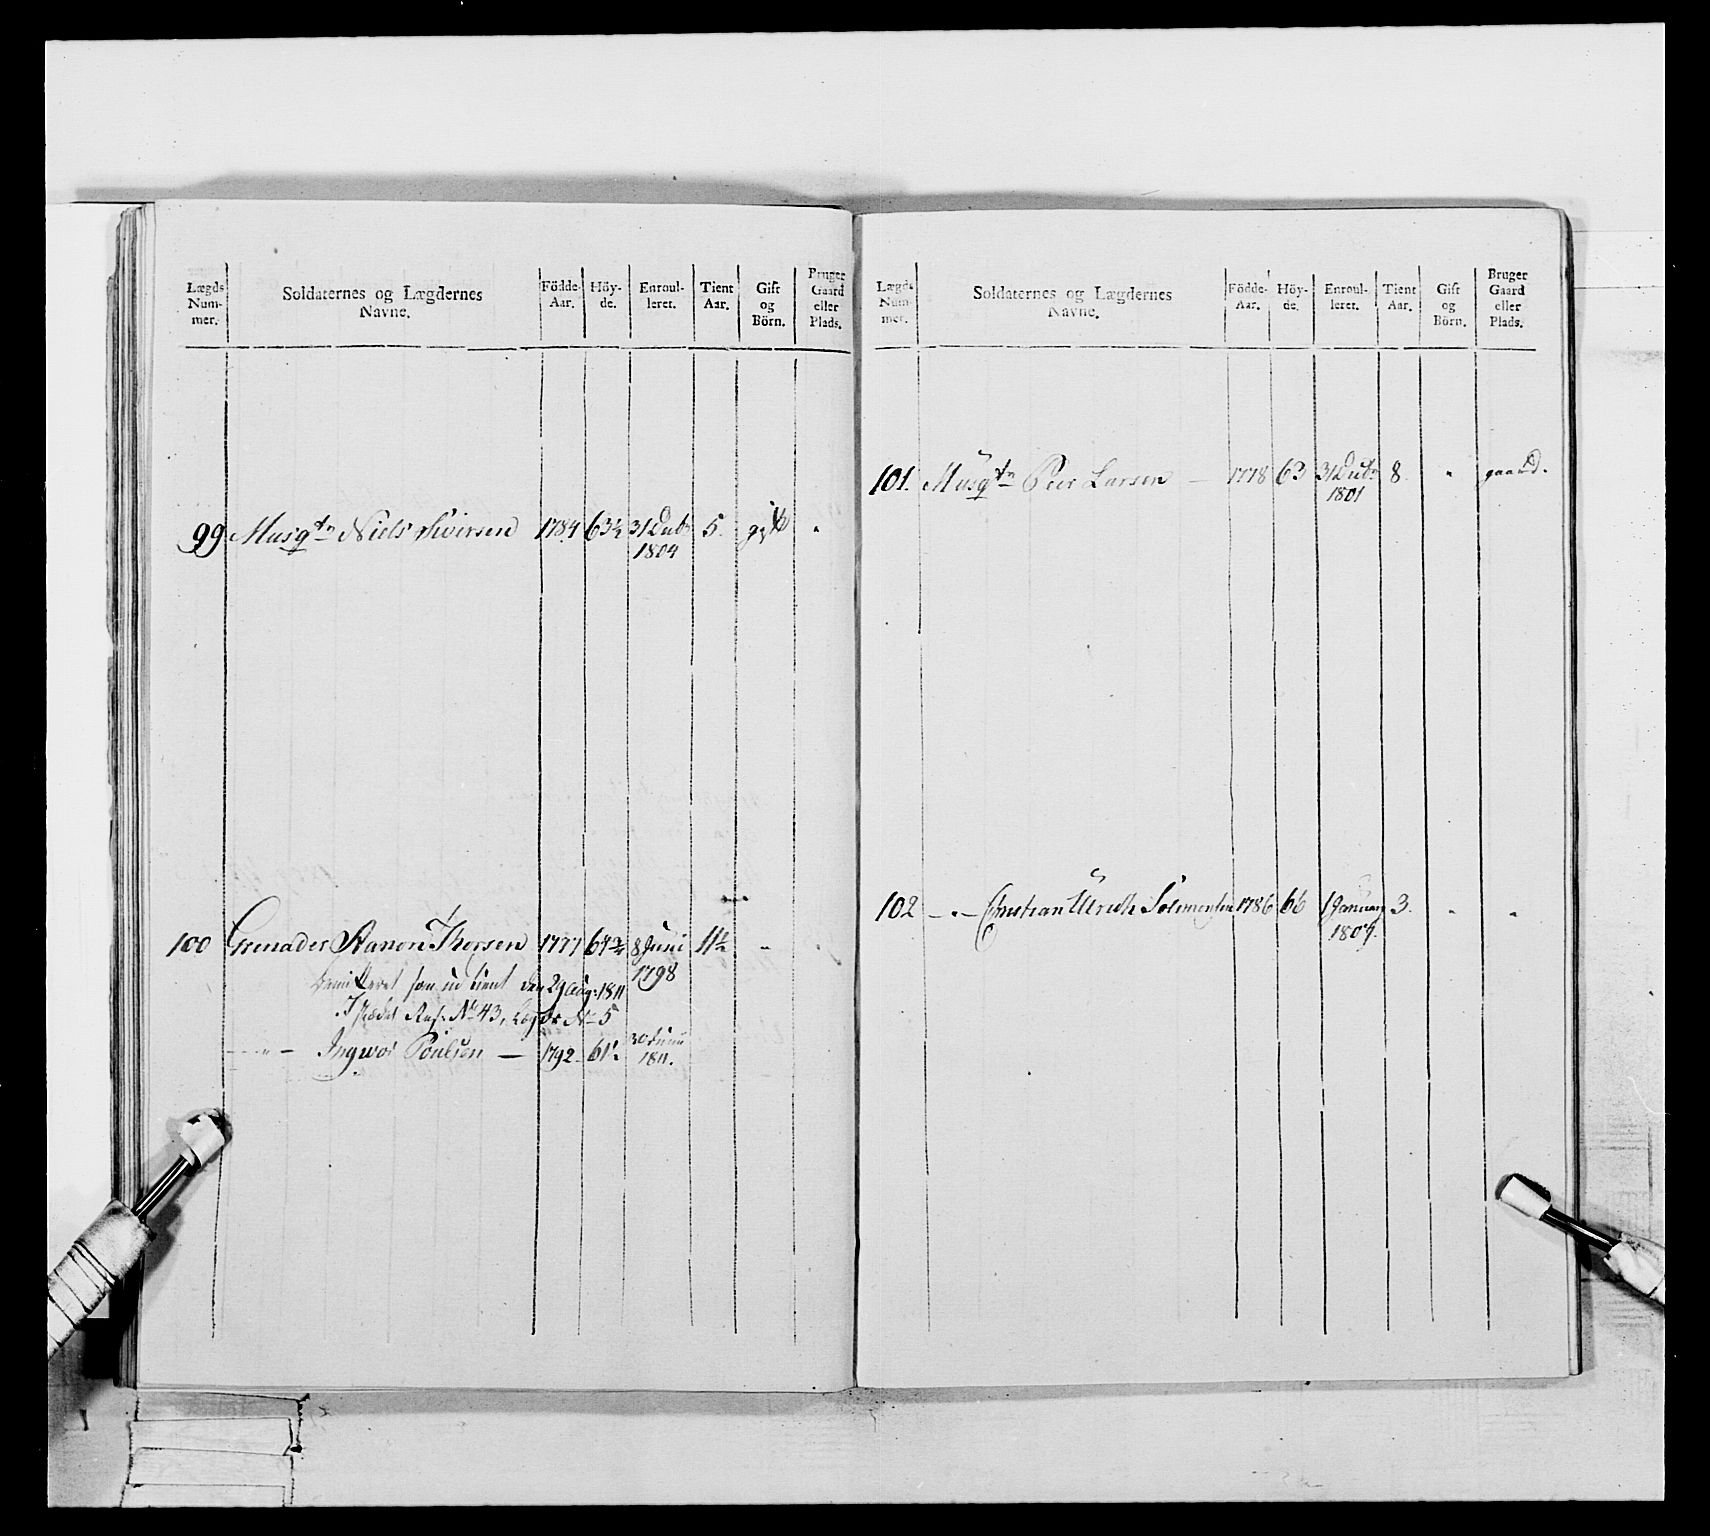 Lægds Num- mer.
Soldaternes og Lægdernes Navne.
Födde- Aar.
Höy- de.
Enroul- leret.
Tient Aar.
Gift og Börn.
Bruger Gaard eller Plads.
99 Musqtr Niels Siversen 1784 63½ 31 Decbr 5. gift "
1804
100 Grenader Aanon Thorsen 1777 64 8 Juni 11½ "
1798
Demitteret som ud tient den 29 Aug: 1811
I stædet Res: No 43, Lægds No 5
- - " - Ingwor Poulsen — 1792 61½ 30 Juni
1811.
Lægds Num- mer.
Soldaternes og Lægdernes Navne.
Födde- Aar.
Höy- de.
Enroul- leret.
Tient Aar.
Gift og Börn.
Bruger Gaard eller Plads.
101. Musqtr Peer Larsen — 1778 63 31 Decbr 8. " gaard.
1801
102 - " - Christian Ulrich Solomonsen 1786 66 1 Januar 3. " "
1807.